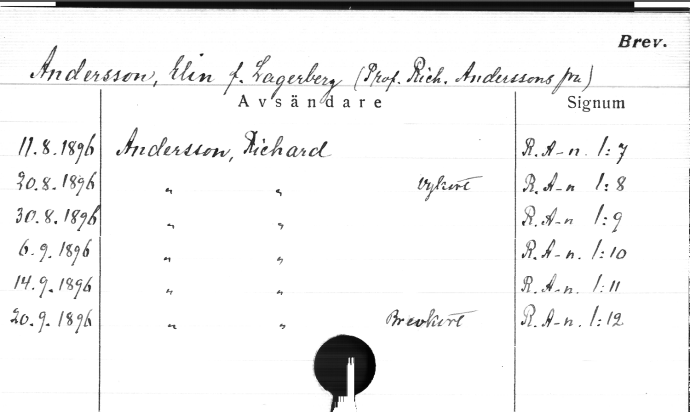 Brev.
Andersson, Elin f. Lagerberg (Prof. Rich. Anderssons fru)
Avsändare Signum
11.8.1896 Andersson, Richard R. A-n. 1:7
20.8.1896 " " vykort R. A-n 1:8
30.8.1896 " " R. A-n 1:9
6.9.1896 " " R. A-n. 1:10
14.9.1896 " " R. A-n. 1:11
20.9.1896 " " Brevkort R. A-n. 1:12